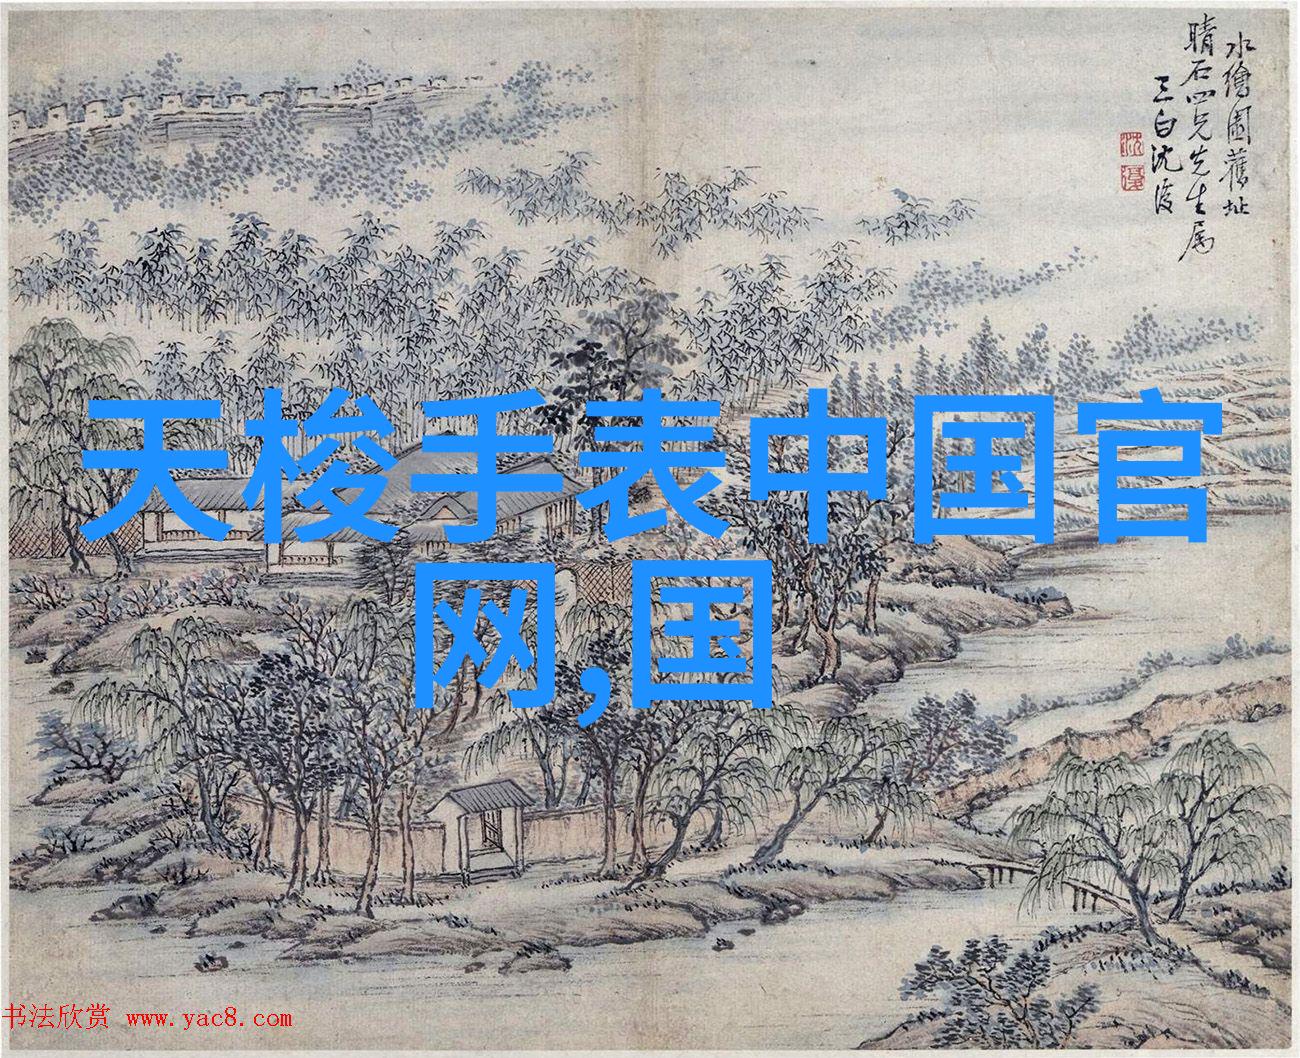 水繪園舊址
晴石四兄先生属
三白沈復
沈
復
天梭手表中国官
网,国
书法欣赏 www.yac8.com